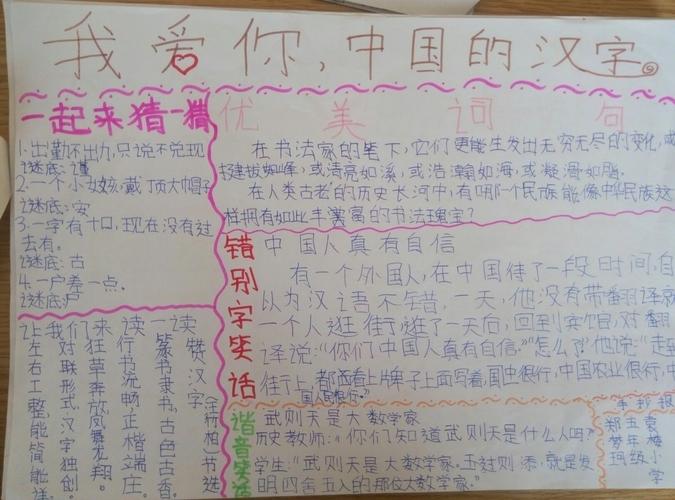 我爱你,中国的汉字
一起来猜一猜
1.出勤不出力,只说不兑现
谜底:谨
2.一个小女孩,戴顶大帽子
谜底:安
3.一字有十口,现在没有过
去有。
谜底:古
4.一户差一点.
谜底尸
优美词句
在书法家的笔下,它们更能生发出无穷无尽的变化,或
挺拔如峰,或清亮如溪,或浩瀚如海,或凝滑如脂.
在人类古老的历史长河中,有哪个民族能像中华民族这
样拥有如此丰富的书法瑰宝?
错别字笑话
中国人真有自信
有一个外国人,在中国待了一段时间,自
以为汉语不错,一天,他没有带翻译就
一个人逛街,逛了一天后,回到宾馆,对翻
译说:"你们中国人真有自信.""怎么了?"他说:"走到
街上,都看上牌子上面写着,中国很行,中国农业很行,中
国人民很行."
读赞汉字
(王行柏)节选
一篆书隶书,古色古香.
读行书流畅,正楷端庄.
来狂草奔放,凤舞龙翔.
我们对联形式,汉字独创.
让左右工整,能简能详.
谐音笑话
武则天是大数学家
历史教师:"你们知道武则天是什么人吗?
学生:"武则天是大数学家.五过则添,就是发
明四舍五入的那位大数学家.
手抄报